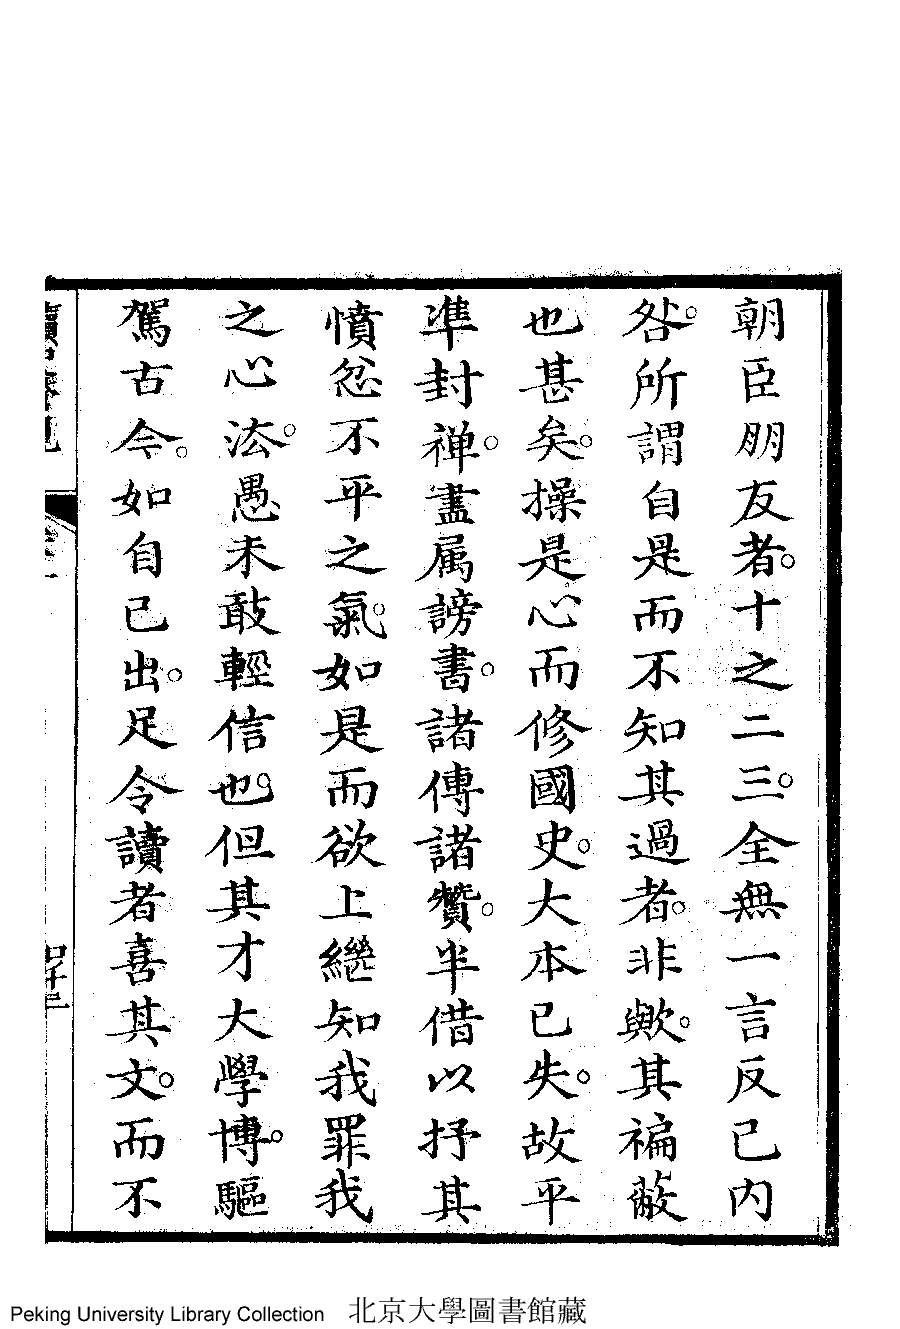 朝臣朋友者。十之二三。全無一言反已内
咎。所謂自是而不知其過者。非歟。其褊蔽
也甚矣。操是心而修國史。大本已失。故平
凖封禅。盡属謗書。諸傳諸贊。半借以抒其
憤忿不平之氣。如是而欲上繼知我罪我
之心法。愚未敢輕信也。但其才大學博。驅
駕古今。如自已出。足令讀者喜其文。而不
卷一
四十三
Peking University Library Collection 北京大學圖書館藏